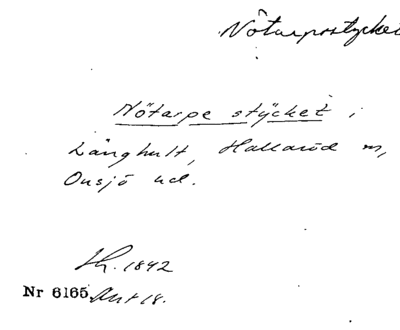 Nötarpostycket
Nötarpe stycket i
Långhult, Hallaröd m,
Onsjö hd.
Lh. 1842
Nr 6165 Akt 18.